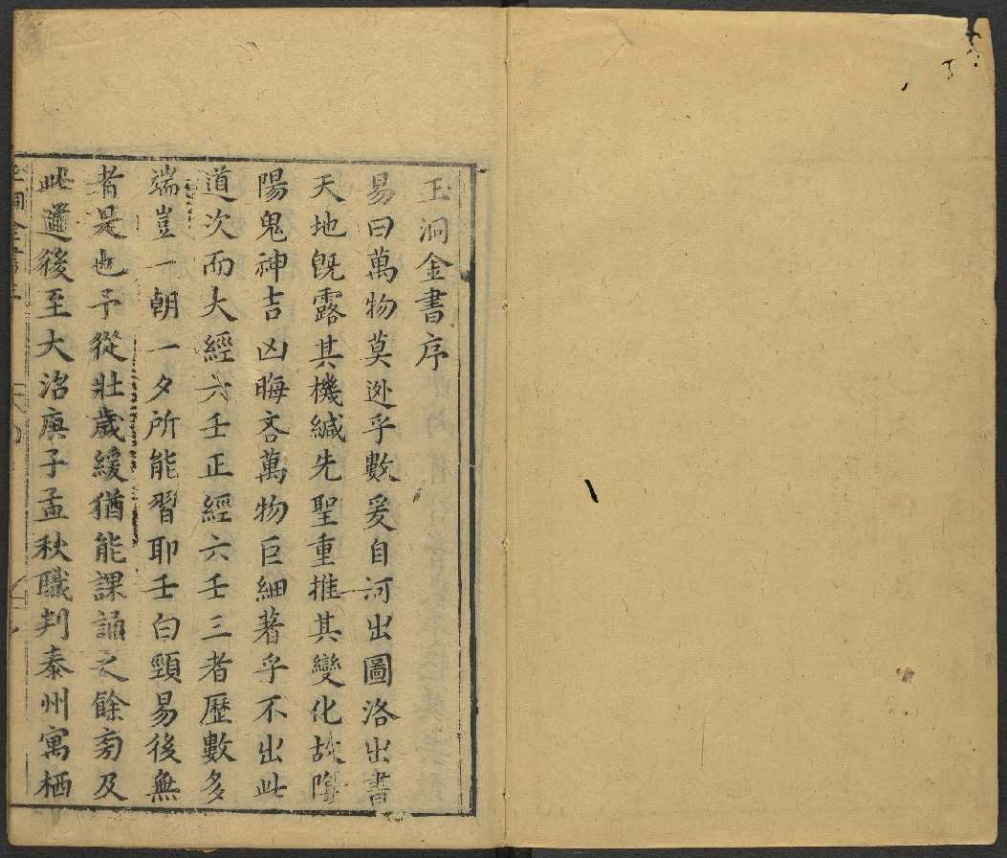 玉洞金書序
易曰萬物莫逃乎數爰自河出圖洛出書
天地旣露其機緘先聖重推其變化故陰
陽鬼神吉凶晦吝萬物巨細著乎不出此
道次而大經六壬正經六壬三者歷數多
端豈一朝一夕所能習耶壬白頸易後無
者是也予從壯歲緩猶能課誦之餘旁及
此遁後至大沿庚子孟秋職判泰州寓栖